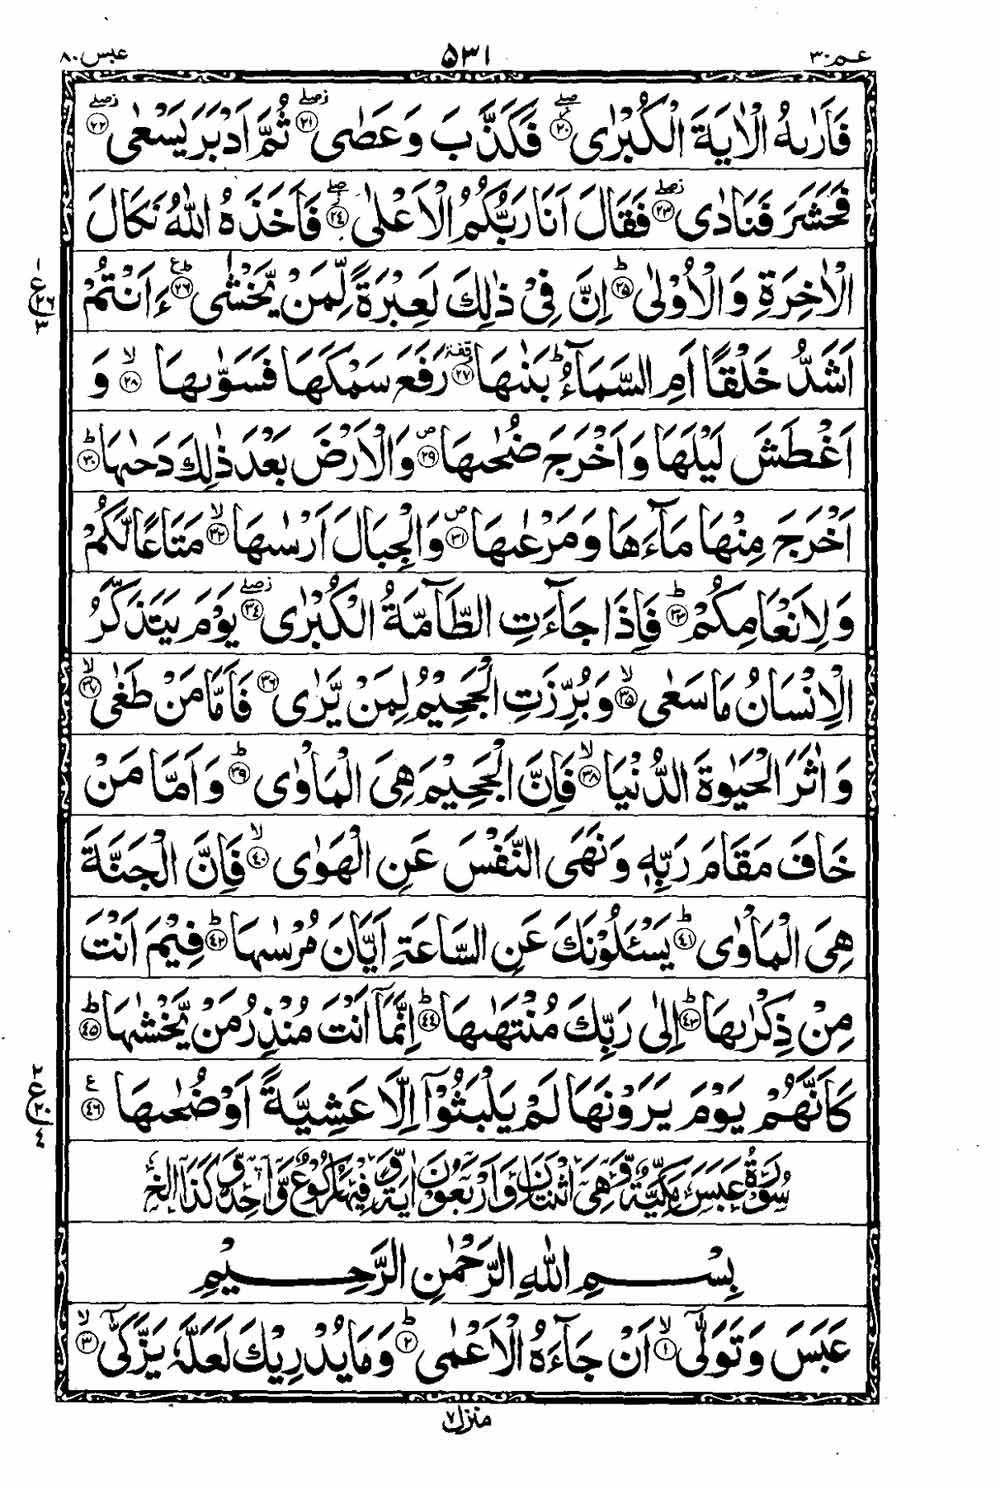 عبس ٨٠ ٥٣١ عـم ٣٠
فَاَرٰىهُ الْاٰيَةَ الْكُبْرٰى ۖ ٢٠ فَكَذَّبَ وَعَصٰى ۖ ٢١ ثُمَّ اَدْبَرَ يَسْعٰى ۖ ٢٢
فَحَشَرَ فَنَادٰى ۖ ٢٣ فَقَالَ اَنَا رَبُّكُمُ الْاَعْلٰى ۖ ٢٤ فَاَخَذَهُ اللّٰهُ نَكَالَ
الْاٰخِرَةِ وَالْاُوْلٰى ؕ ٢٥ اِنَّ فِيْ ذٰلِكَ لَعِبْرَةً لِّمَنْ يَّخْشٰى ؕع ٢٦ ءَاَنْتُمْ
اَشَدُّ خَلْقًا اَمِ السَّمَآءُ ؕ بَنٰىهَا وقفة ٢٧ رَفَعَ سَمْكَهَا فَسَوّٰىهَا ۙ ٢٨ وَ
اَغْطَشَ لَيْلَهَا وَاَخْرَجَ ضُحٰىهَا ص ٢٩ وَالْاَرْضَ بَعْدَ ذٰلِكَ دَحٰىهَا ؕ ٣٠
اَخْرَجَ مِنْهَا مَآءَهَا وَمَرْعٰىهَا ص ٣١ وَالْجِبَالَ اَرْسٰىهَا ۙ ٣٢ مَتَاعًا لَّكُمْ
وَلِاَنْعَامِكُمْ ؕ ٣٣ فَاِذَا جَآءَتِ الطَّآمَّةُ الْكُبْرٰى ۖ ٣٤ يَوْمَ يَتَذَكَّرُ
الْاِنْسَانُ مَا سَعٰى ۙ ٣٥ وَبُرِّزَتِ الْجَحِيْمُ لِمَنْ يَّرٰى ٣٦ فَاَمَّا مَنْ طَغٰى ۙ ٣٧
وَاٰثَرَ الْحَيٰوةَ الدُّنْيَا ۙ ٣٨ فَاِنَّ الْجَحِيْمَ هِيَ الْمَاْوٰى ؕ ٣٩ وَاَمَّا مَنْ
خَافَ مَقَامَ رَبِّهٖ وَنَهَى النَّفْسَ عَنِ الْهَوٰى ۙ ٤٠ فَاِنَّ الْجَنَّةَ
هِيَ الْمَاْوٰى ؕ ٤١ يَسْـَٔلُوْنَكَ عَنِ السَّاعَةِ اَيَّانَ مُرْسٰىهَا ؕ ٤٢ فِيْمَ اَنْتَ
مِنْ ذِكْرٰىهَا ؕ ٤٣ اِلٰى رَبِّكَ مُنْتَهٰىهَا ؕ ٤٤ اِنَّمَآ اَنْتَ مُنْذِرُ مَنْ يَّخْشٰىهَا ؕ ٤٥
كَاَنَّهُمْ يَوْمَ يَرَوْنَهَا لَمْ يَلْبَثُوْٓا اِلَّا عَشِيَّةً اَوْ ضُحٰىهَا ع ٤٦
سُوْرَةُ عَبَسَ مَكِّيَّةٌ وَّهِيَ اثْنَتَانِ وَاَرْبَعُوْنَ اٰيَةً وَّفِيْهَا رُكُوْعٌ وَّاحِدٌ وَ كَذَا الخ
بِسْمِ اللّٰهِ الرَّحْمٰنِ الرَّحِيْمِ
عَبَسَ وَتَوَلّٰٓى ۙ ١ اَنْ جَآءَهُ الْاَعْمٰى ؕ ٢ وَمَا يُدْرِيْكَ لَعَلَّهٗ يَزَّكّٰٓى ۙ ٣
منزل ٧
١ ع ٢٦ ٣
٢ ع ٢٠ ٤